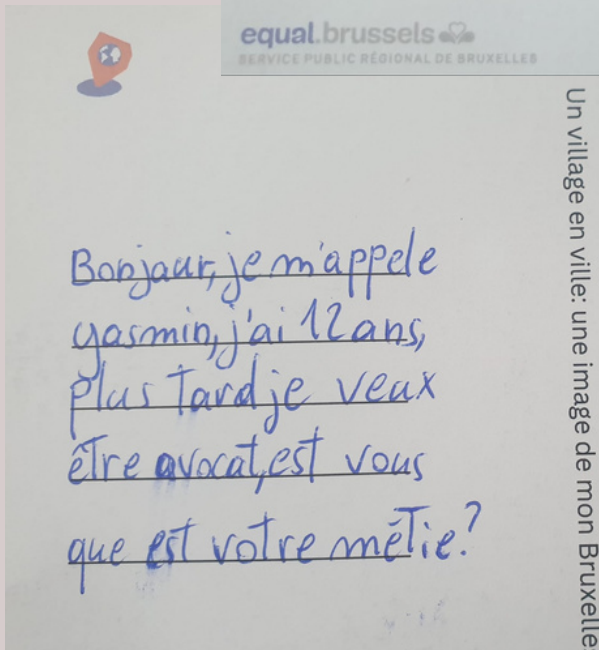 equal.brussels
SERVICE PUBLIC RÉGIONAL DE BRUXELLES
Bonjour, je m'appele
yasmin, j'ai 12 ans,
plus tard je veux
être avocat, est vous
que est votre métie?
Un village en ville: une image de mon Bruxelles